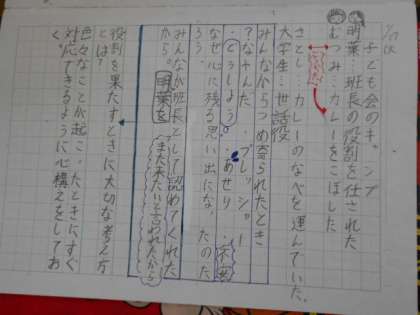 子ども会のキャンプ
明葉 班長の役割を任された
むつみ・カレーをこぼした
さとし カレーのなべを運んでいた。
大学生…世話役
みんなからつめ寄られたとき
?なやんだ プレッシャー
・どうしよう ・あせり ・不安
なぜ心に残る思い出になったのだ
ろう
みんなが班長として認めてくれた
から。明葉を
また来たいと言われたから
役割を果たすときに大切な考え方
とは?
色々なことが起こったときにすぐ
対応できるように心構えをしてお
く。